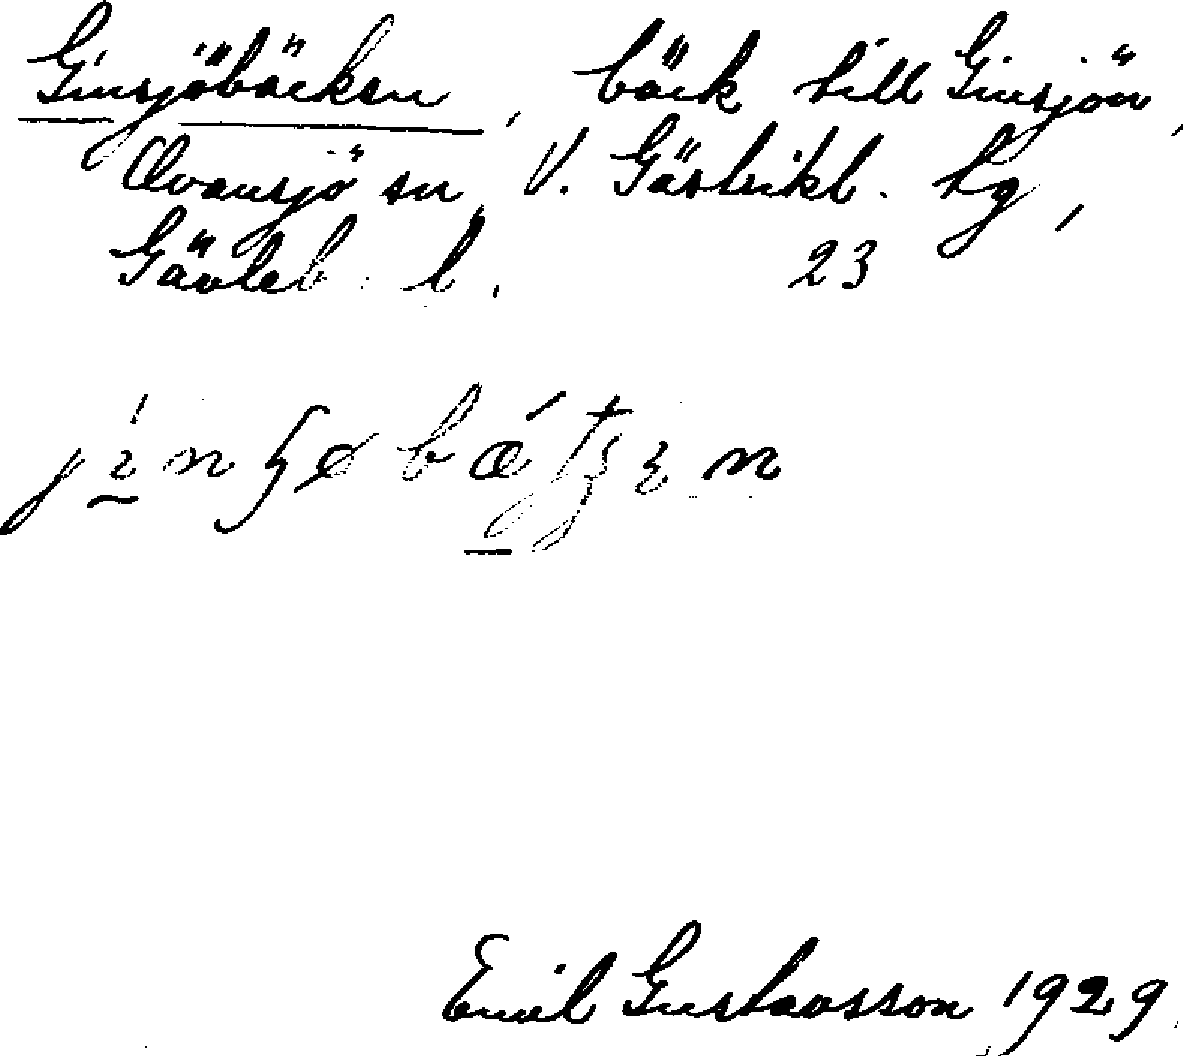 Ginsjöbäcken, bäck till Ginsjön,
Ovansjö sn, V. Gästrikl. hg,
Gävleb. l. 23
Emil Gustavsson 1929